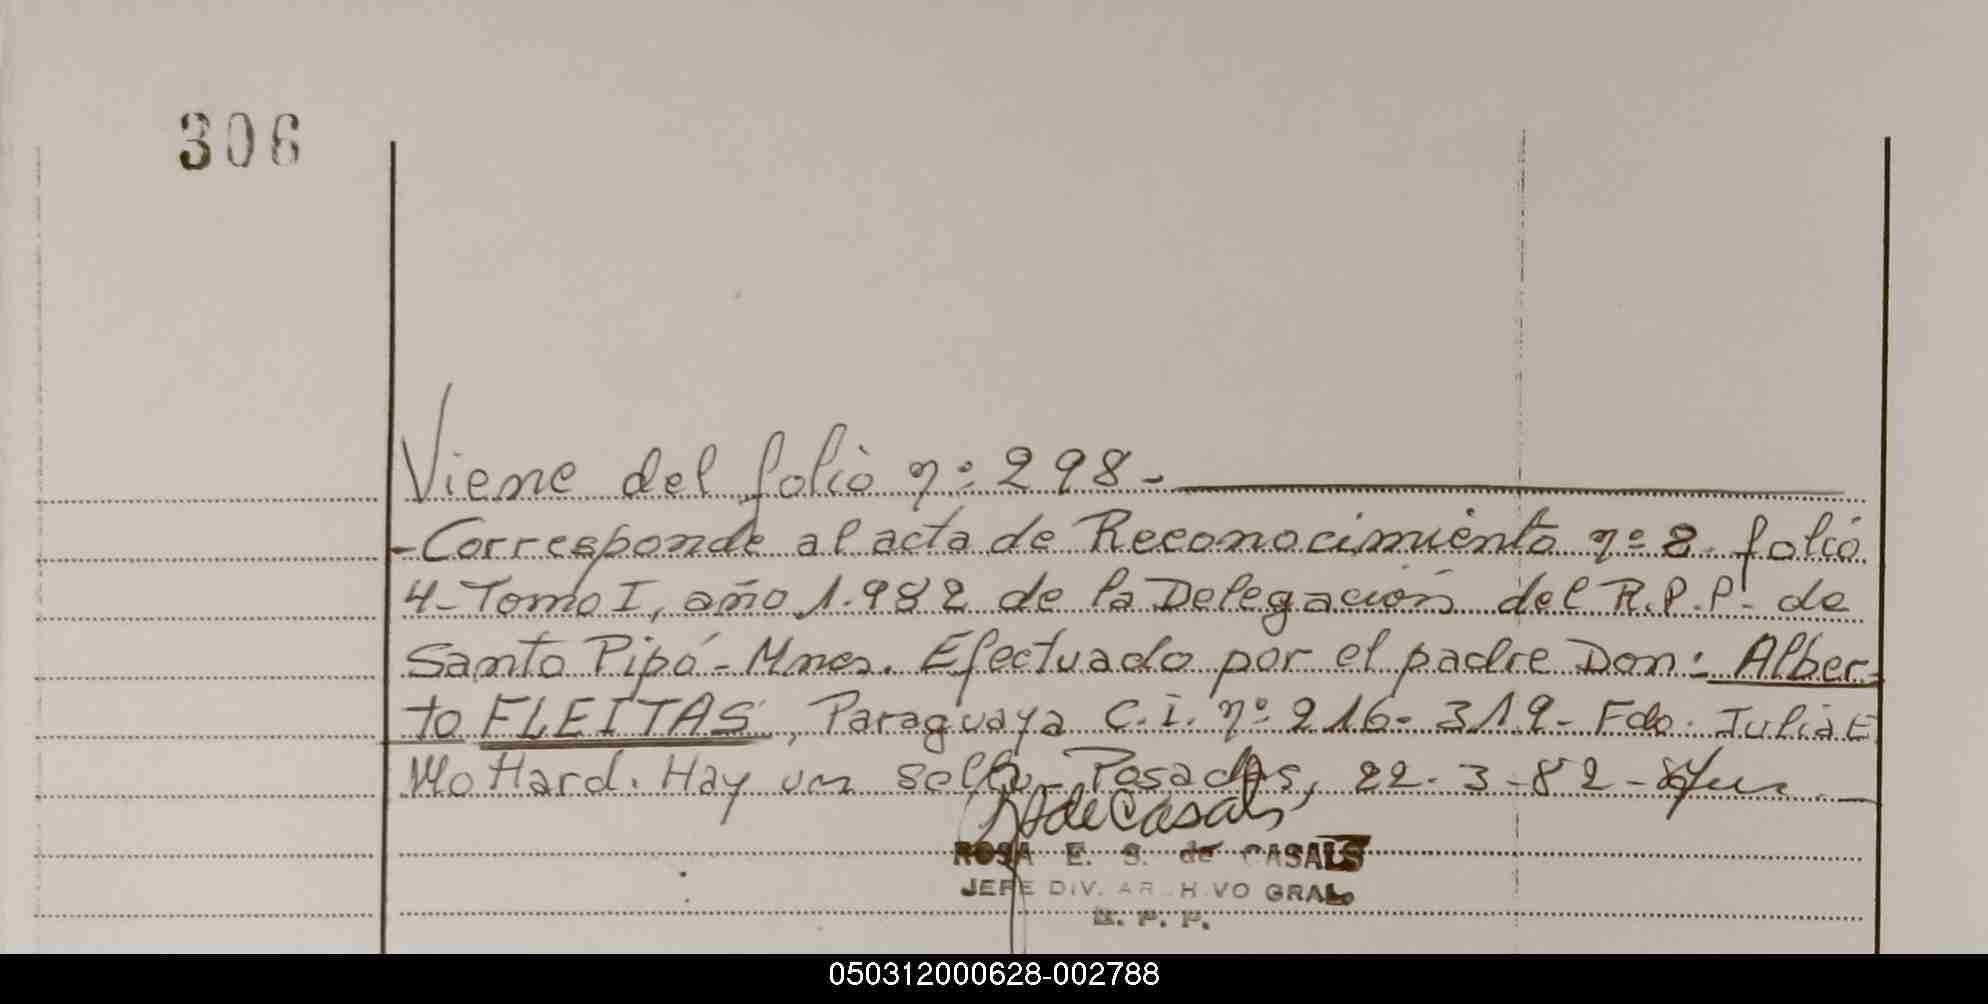 306
Viene del folio nº 298-
-Corresponde al acta de Reconocimiento nº 8. folio
4- Tomo I, año 1.982 de la Delegación del R.P.P. de
Santo Pipó- Mnes. Efectuado por el padre Don: Alber-
to FLEITAS, Paraguaya C.I. nº 216-319- Fdo. Julia E
Mottard. Hay un sello- Posadas, 22-3-82-
de Casals
ROSA E. S. de CASALS
JEFE DIV. ARCHIVO GRAL.
R. P. P.
050312000628-002788